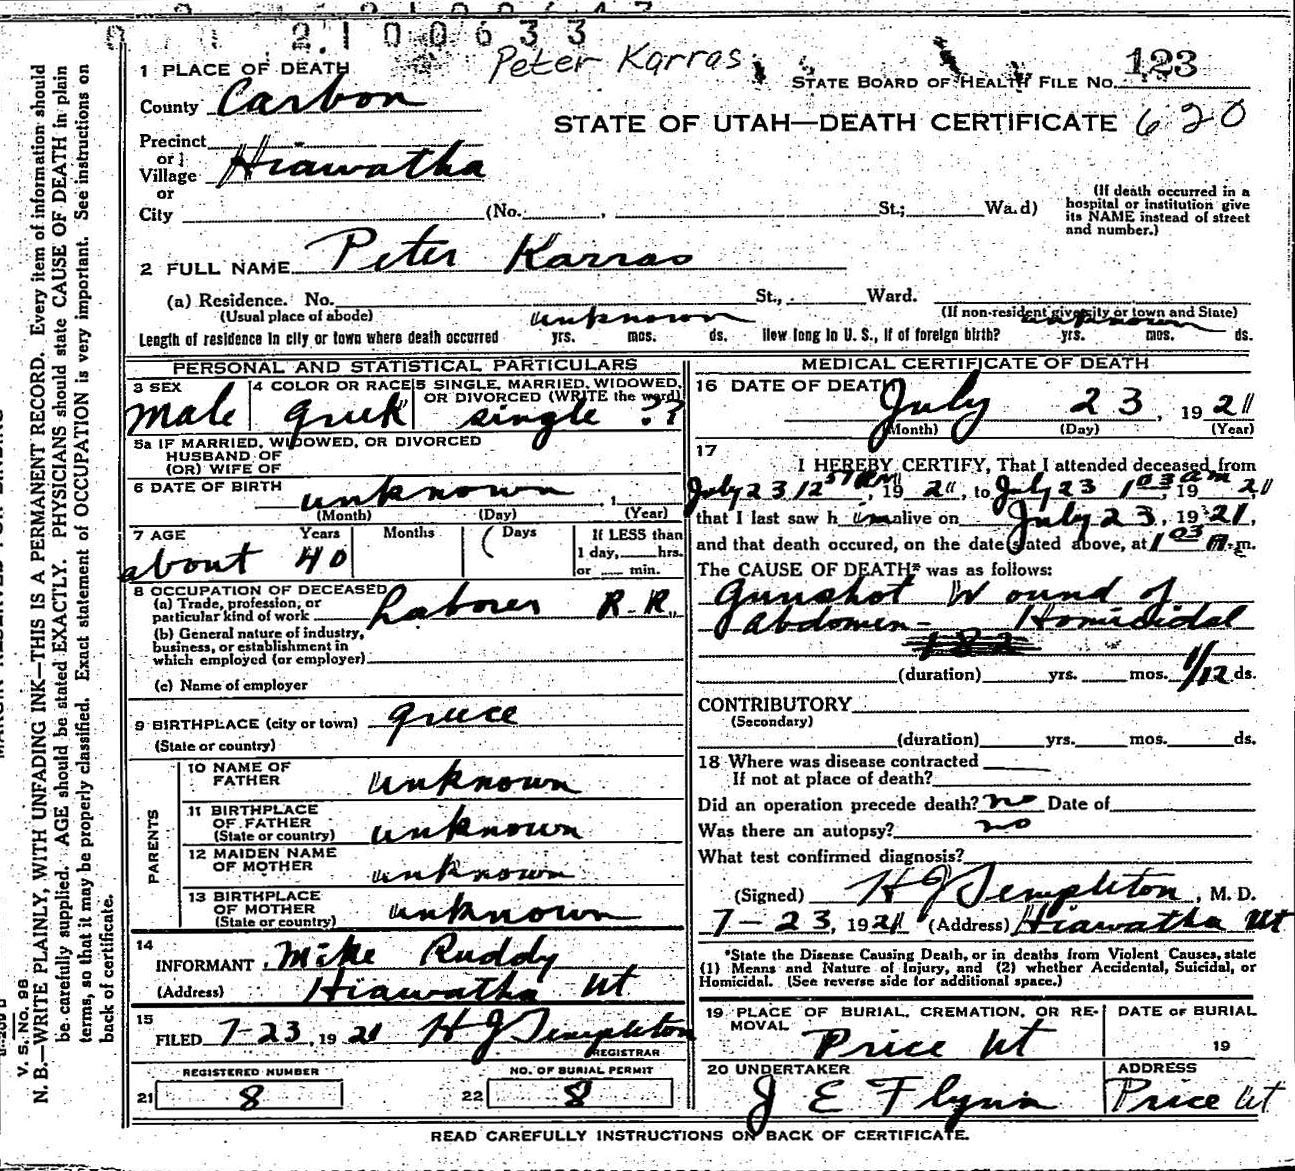 2100633
Peter Karras
1 PLACE OF DEATH
STATE BOARD OF HEALTH FILE No. 123
County Carbon
STATE OF UTAH—DEATH CERTIFICATE 620
Precinct
or
Village Hiawatha
or
City (No. , St.; Wa.d)
(If death occurred in a hospital or institution give its NAME instead of street and number.)
2 FULL NAME Peter Karras
(a) Residence. No. St., Ward.
(Usual place of abode) (If non-resident give city or town and State)
Length of residence in city or town where death occurred unknown yrs. mos. ds. How long in U. S., if of foreign birth? unknown yrs. mos. ds.
PERSONAL AND STATISTICAL PARTICULARS
3 SEX 4 COLOR OR RACE 5 SINGLE, MARRIED, WIDOWED, OR DIVORCED (WRITE the word)
male greek single ??
5a IF MARRIED, WIDOWED, OR DIVORCED
HUSBAND OF
(OR) WIFE OF
6 DATE OF BIRTH unknown , 1
(Month) (Day) (Year)
7 AGE Years Months Days If LESS than
1 day, hrs.
or min.
about 40
8 OCCUPATION OF DECEASED
(a) Trade, profession, or
particular kind of work Laborer R.R.
(b) General nature of industry,
business, or establishment in
which employed (or employer)
(c) Name of employer
9 BIRTHPLACE (city or town) greece
(State or country)
PARENTS
10 NAME OF
FATHER unknown
11 BIRTHPLACE
OF FATHER
(State or country) unknown
12 MAIDEN NAME
OF MOTHER unknown
13 BIRTHPLACE
OF MOTHER
(State or country) unknown
14
INFORMANT Mike Ruddy
(Address) Hiawatha Ut
15
FILED 7-23, 19 21 H J Templeton
REGISTRAR
REGISTERED NUMBER NO. OF BURIAL PERMIT
21 8 22 8
MEDICAL CERTIFICATE OF DEATH
16 DATE OF DEATH
July 23, 19 21
(Month) (Day) (Year)
17
I HEREBY CERTIFY, That I attended deceased from
July 23 12 57 am, 19 21, to July 23 1 03 am, 19 21
that I last saw h im alive on July 23, 19 21,
and that death occured, on the date stated above, at 1 03 A. m.
The CAUSE OF DEATH* was as follows:
Gunshot Wound of
Abdomen - Homicidal
182
(duration) yrs. mos. 1/12 ds.
CONTRIBUTORY
(Secondary)
(duration) yrs. mos. ds.
18 Where was disease contracted
If not at place of death?
Did an operation precede death? no Date of
Was there an autopsy? no
What test confirmed diagnosis?
(Signed) H J Templeton, M. D.
7-23, 1921 (Address) Hiawatha Ut
*State the Disease Causing Death, or in deaths from Violent Causes, state
(1) Means and Nature of Injury, and (2) whether Accidental, Suicidal, or
Homicidal. (See reverse side for additional space.)
19 PLACE OF BURIAL, CREMATION, OR RE-
MOVAL
Price Ut
DATE OF BURIAL
19
20 UNDERTAKER
J E Flynn
ADDRESS
Price Ut
READ CAREFULLY INSTRUCTIONS ON BACK OF CERTIFICATE.
V. S. No. 98
N. B.—WRITE PLAINLY, WITH UNFADING INK—THIS IS A PERMANENT RECORD. Every item of information should
be carefully supplied. AGE should be stated EXACTLY. PHYSICIANS should state CAUSE OF DEATH in plain
terms, so that it may be properly classified. Exact statement of OCCUPATION is very important. See instructions on
back of certificate.